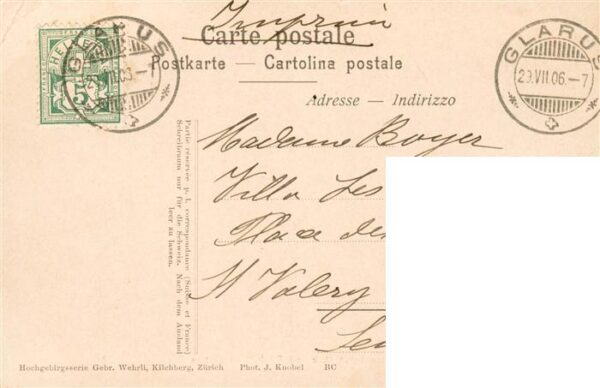 Imprimé
Carte postale
Postkarte — Cartolina postale
Adresse — Indirizzo
HELVETIA
5
GLARUS
GLARUS
29.VII.06.–7
Madame Boyer
Villa Les
Place de
St Valery
Partie réservée p. l. correspondance (Suisse et France)
Schreibraum nur für die Schweiz. Nach dem Ausland
leer zu lassen.
Hochgebirgsserie Gebr. Wehrli, Kilchberg, Zürich Phot. J. Knobel BC